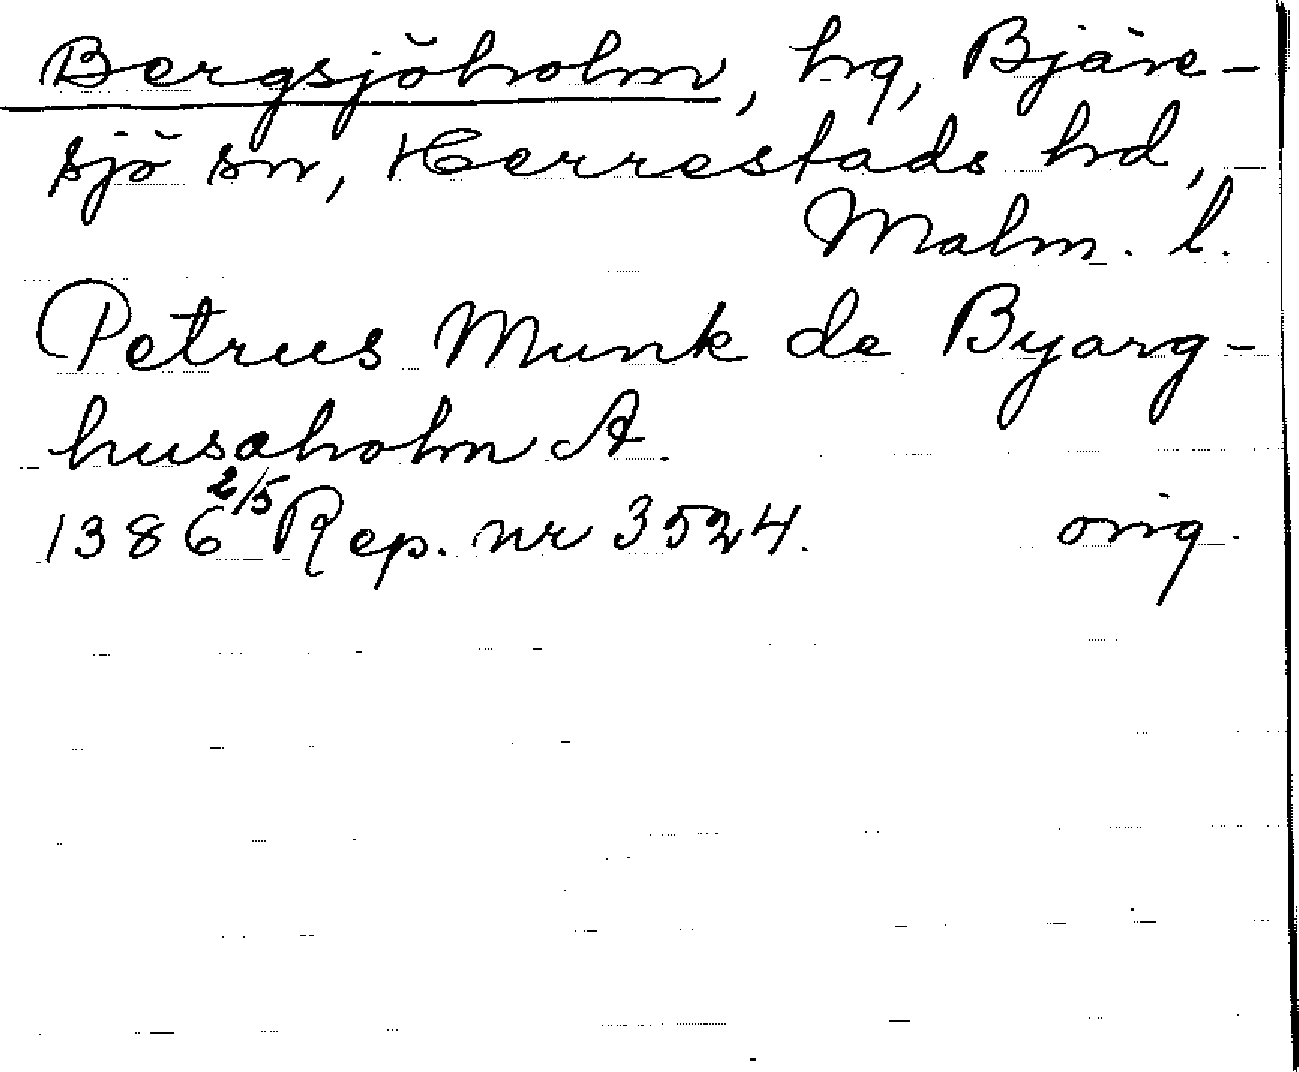 Bergsjöholm, hrg, Bjäre-
sjö sn, Herrestads hrd,
Malm. l.
Petrus Munk de Byarg-
husaholm A.
1386 2/5 Rep. nr 3524. orig.